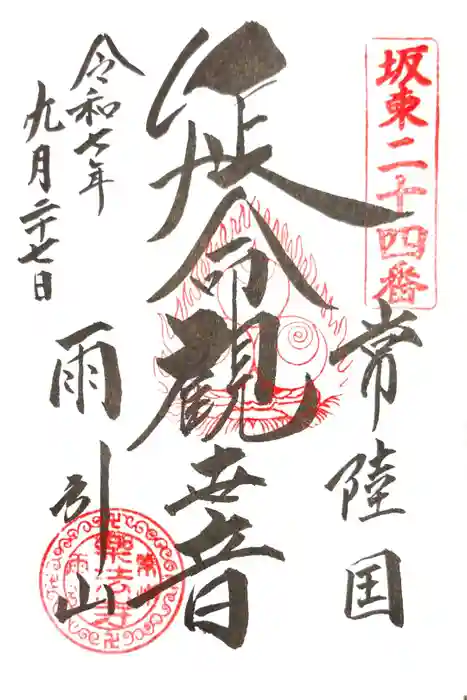 坂東二十四番
常陸国
延命觀世音
雨引山
令和七年
九月二十七日